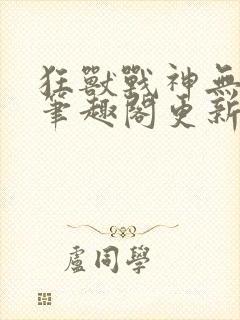 狂獸戰神無
筆趣閣更新
盧同學